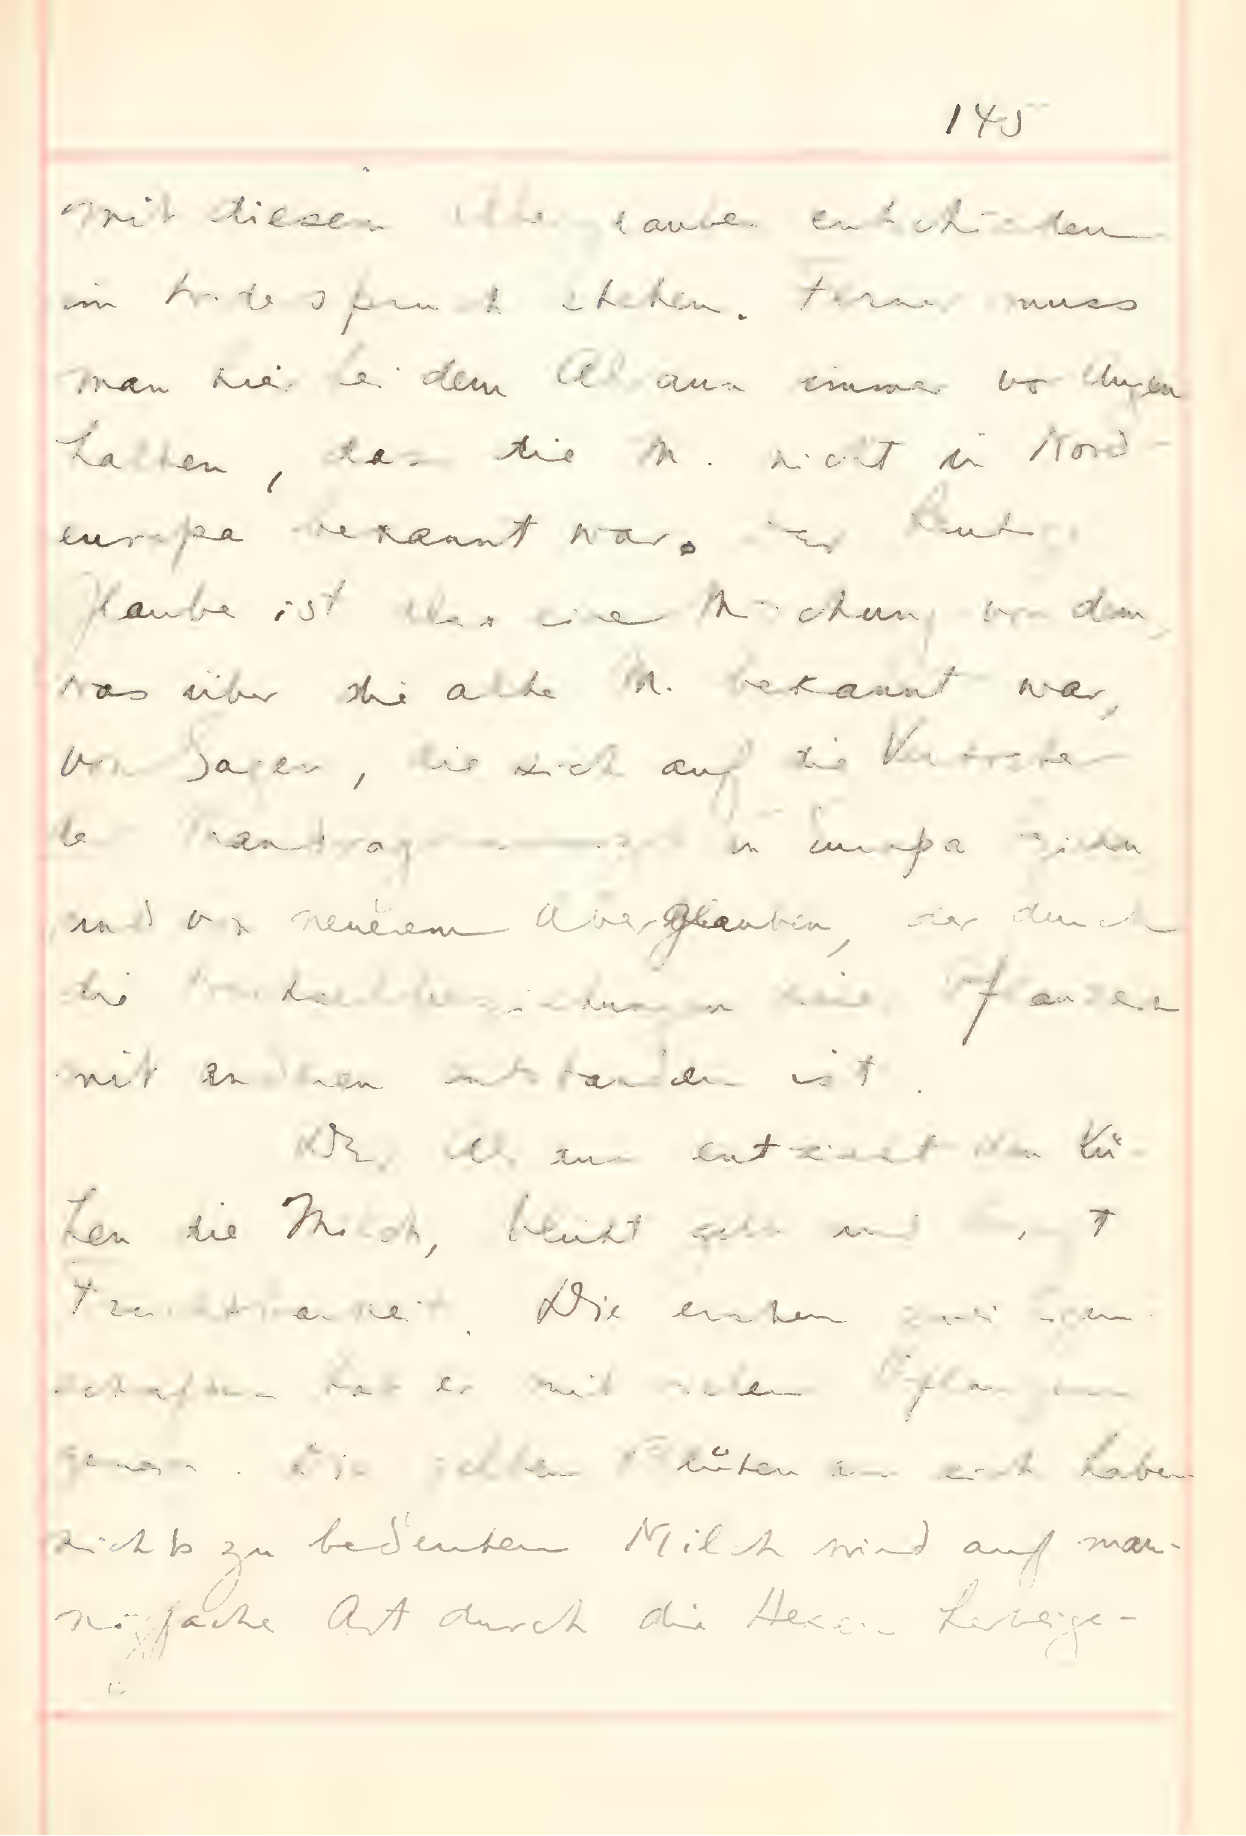 145
mit diesem Aberglauben entschieden
im Widerspruch stehen. Ferner muss
man hier bei dem Alraun immer vor Augen
halten, dass die M. nicht in Nord-
europa bekannt war. Der heutige
Glaube ist also eine Mischung von dem,
was über die alte M. bekannt war,
von Sagen, die sich auf die Vertreter
der in Europa
und von neuerem Aberglauben, der durch
die einer Pflanzen
mit anderen entstanden ist.
Der Alraun entzieht den Kü-
hen die Milch, blüht gelb und
Fruchtbarkeit. Die ersten zwei Eigen-
schaften hat er mit vielen Pflanzen
gemein. Die gelben Blüten an sich haben
nichts zu bedeuten Milch wird auf man-
nigfache Art durch die Hexen herbeige-